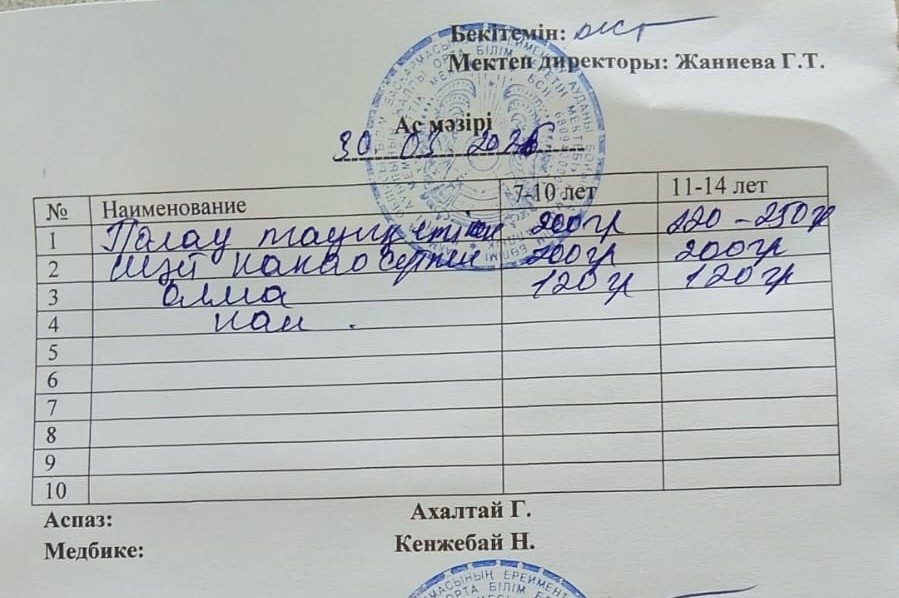 Бекітемін:
Мектеп директоры: Жаниева Г.Т.
Ас мәзірі
30. 03. 2026
№ Наименование 7-10 лет 11-14 лет
1 Палау тауық етімен 200гр 220-250гр
2 какао 200гр 200гр
3 алма 120гр 120гр
4 нан.
5
6
7
8
9
10
Аспаз: Ахалтай Г.
Медбике: Кенжебай Н.